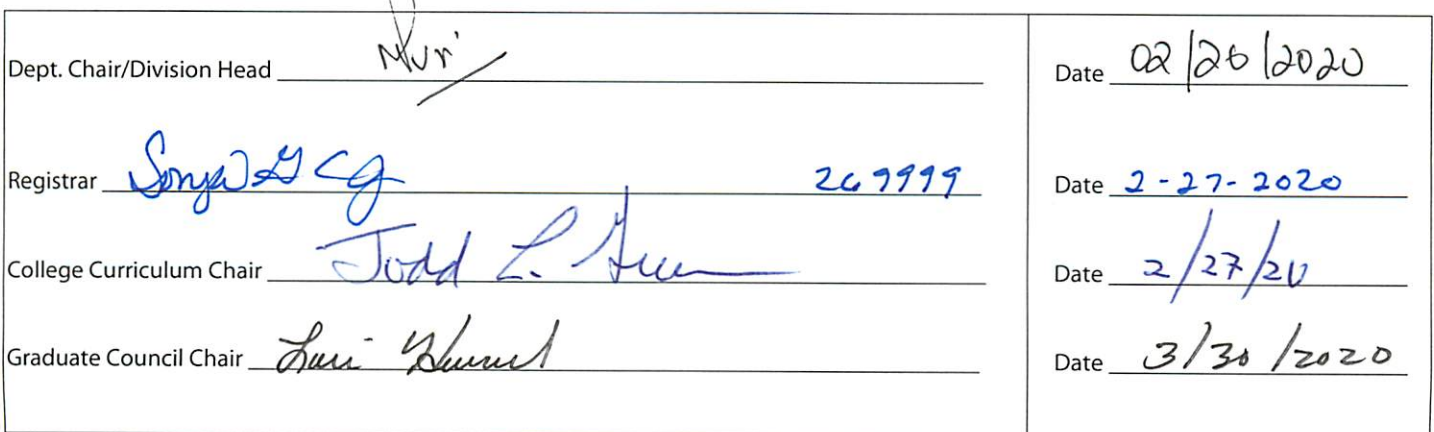 Dept. Chair/Division Head Date 02/26/2020
Registrar Sonya G 269999 Date 2-27-2020
College Curriculum Chair Todd L. Date 2/27/20
Graduate Council Chair Lori Date 3/30/2020